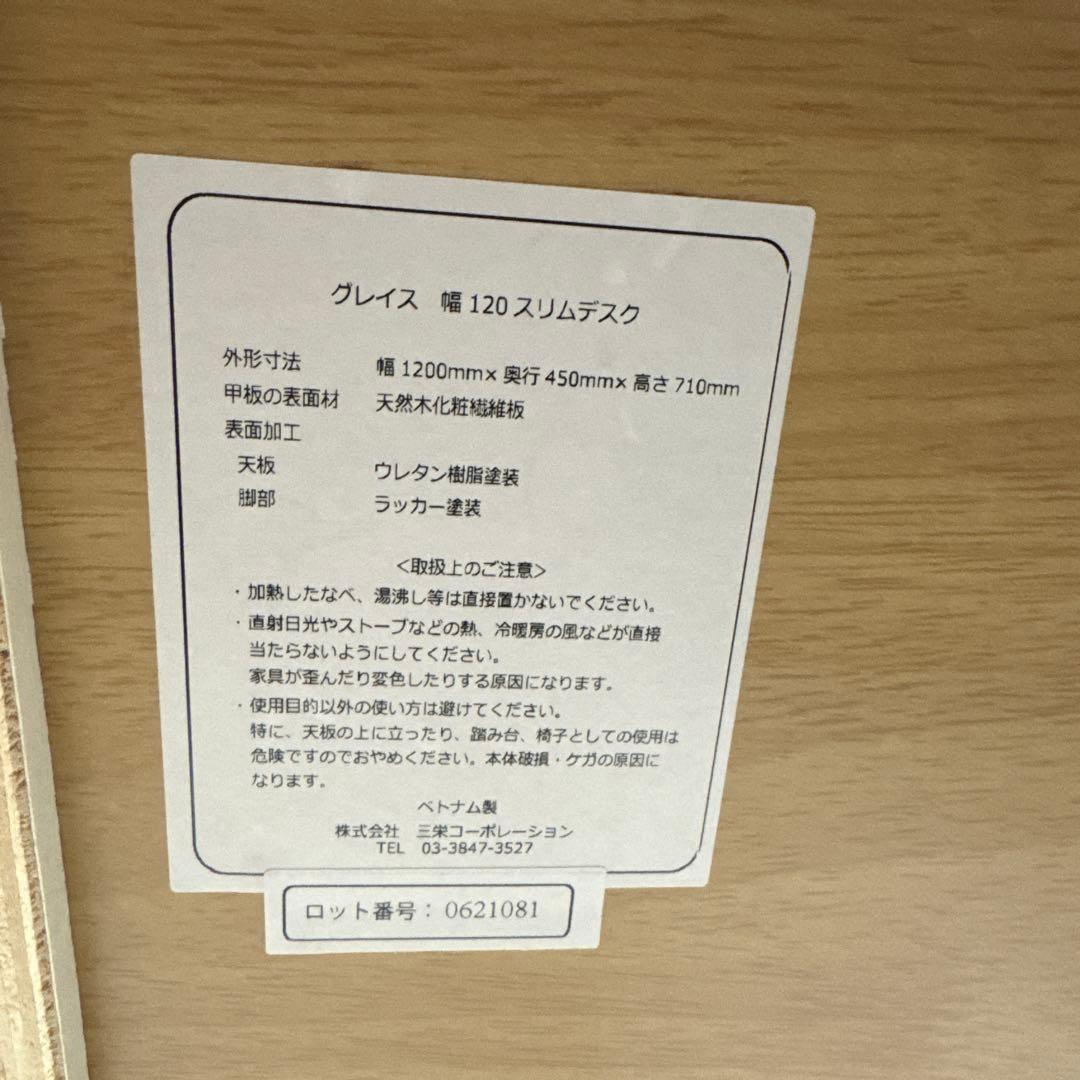 グレイス 幅120スリムデスク
外形寸法 幅1200mm×奥行450mm×高さ710mm
甲板の表面材 天然木化粧繊維板
表面加工
天板 ウレタン樹脂塗装
脚部 ラッカー塗装
<取扱上のご注意>
・加熱したなべ、湯沸し等は直接置かないでください。
・直射日光やストーブなどの熱、冷暖房の風などが直接
当たらないようにしてください。
家具が歪んだり変色したりする原因になります。
・使用目的以外の使い方は避けてください。
特に、天板の上に立ったり、踏み台、椅子としての使用は
危険ですのでおやめください。本体破損・ケガの原因に
なります。
ベトナム製
株式会社 三栄コーポレーション
TEL 03-3847-3527
ロット番号：0621081